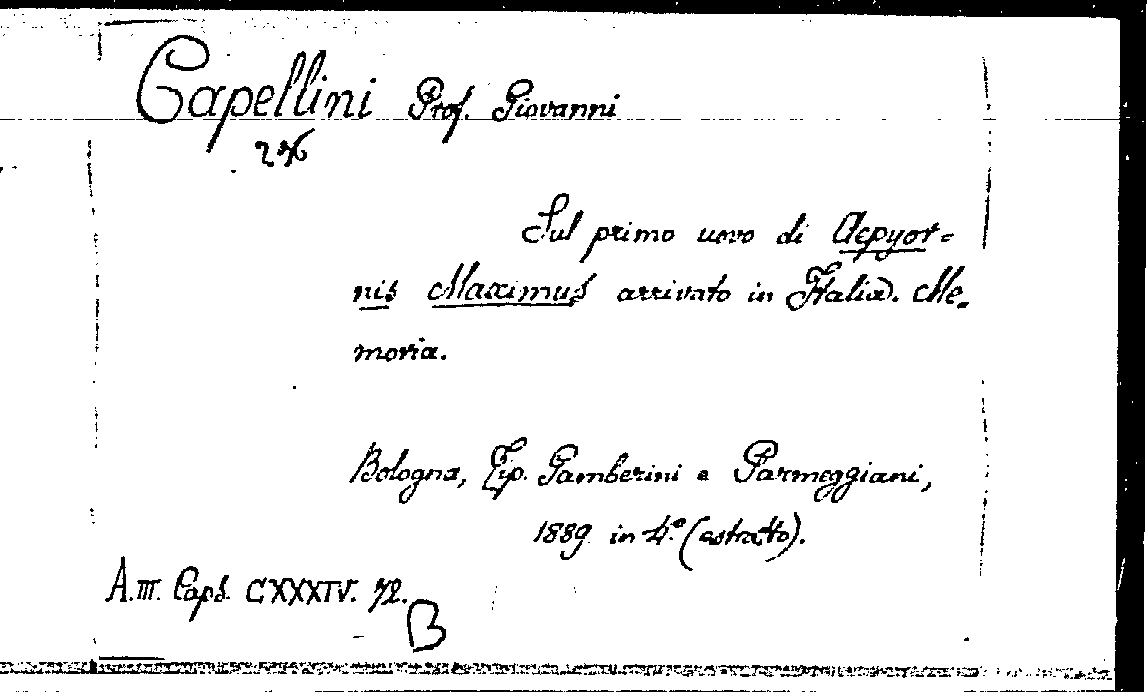 Capellini Prof. Giovanni
Sul primo uovo di Aepyor=
nis Maximus arrivato in Italia. Me-
moria.
Bologna, Tip. Gamberini e Parmeggiani,
1889 in 4.º (estratto).
A.III. Caps. CXXXIV. 72.
B